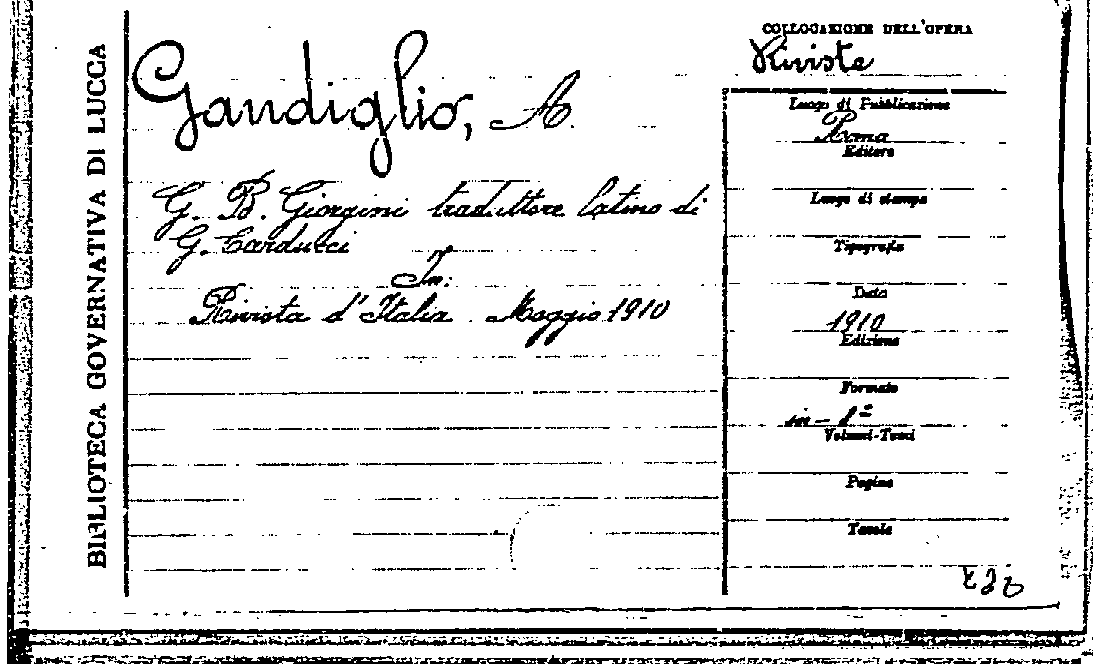 BIBLIOTECA GOVERNATIVA DI LUCCA
Gandiglio, A.
G. B. Giorgini traduttore latino di
G. Carducci
In:
Rivista d'Italia. Maggio 1910
COLLOCAZIONE DELL'OPERA
Riviste
Luogo di Pubblicazione
Roma
Editore
Luogo di stampa
Tipografia
Data
1910
Edizione
Formato
in-8º
Volumi-Tomi
Pagine
Tavole